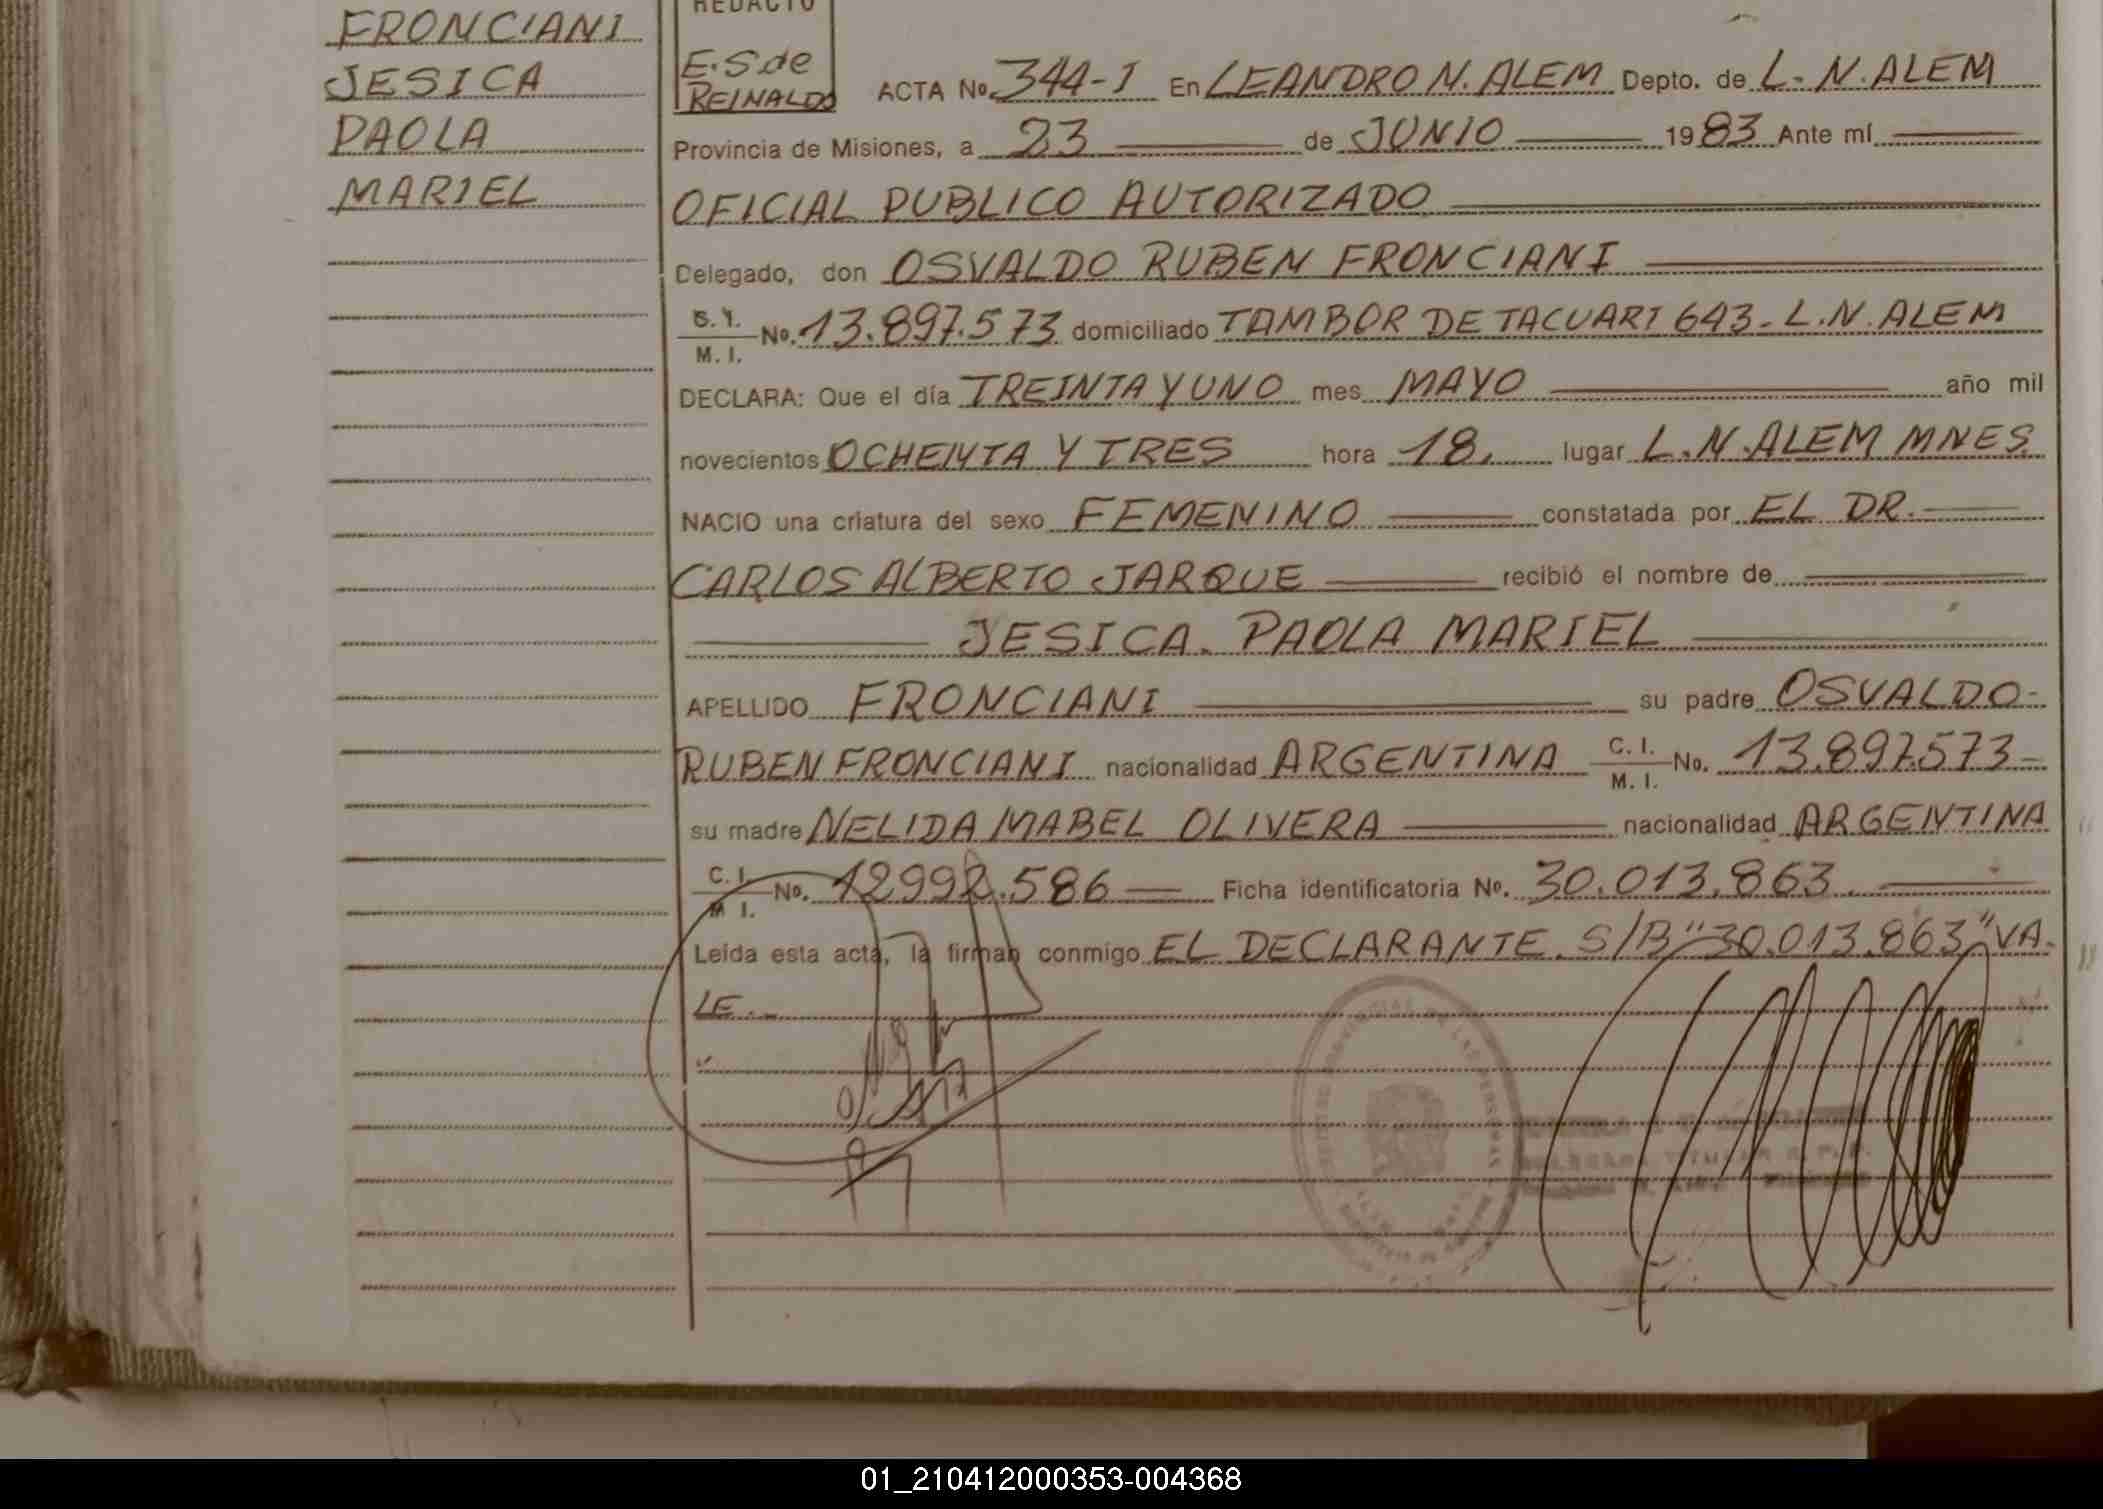 FRONCIANI
JESICA
PAOLA
MARIEL
REDACTO
E.S.de
REINALDO
ACTA No. 344-I En LEANDRO N. ALEM Depto. de L. N. ALEM
Provincia de Misiones, a 23 de JUNIO 1983 Ante mí
OFICIAL PUBLICO AUTORIZADO
Delegado, don OSVALDO RUBEN FRONCIANI
No. 13.897.573 domiciliado TAMBOR DE TACUARI 643- L.N. ALEM
M. I.
DECLARA: Que el día TREINTA Y UNO mes MAYO año mil
novecientos OCHENTA Y TRES hora 18. lugar L.N. ALEM MNES.
NACIO una criatura del sexo FEMENINO constatada por EL DR.
CARLOS ALBERTO JARQUE recibió el nombre de
JESICA. PAOLA MARIEL
APELLIDO FRONCIANI su padre OSVALDO-
RUBEN FRONCIANI nacionalidad ARGENTINA C. I. No. 13.897.573-
M. I.
su madre NELIDA MABEL OLIVERA nacionalidad ARGENTINA
C. I. No. 12992.586 Ficha identificatoria No. 30.013.863.
M I.
Leída esta acta, la firman conmigo EL DECLARANTE. S/B "30.013.863" VA-
LE.-
01_210412000353-004368